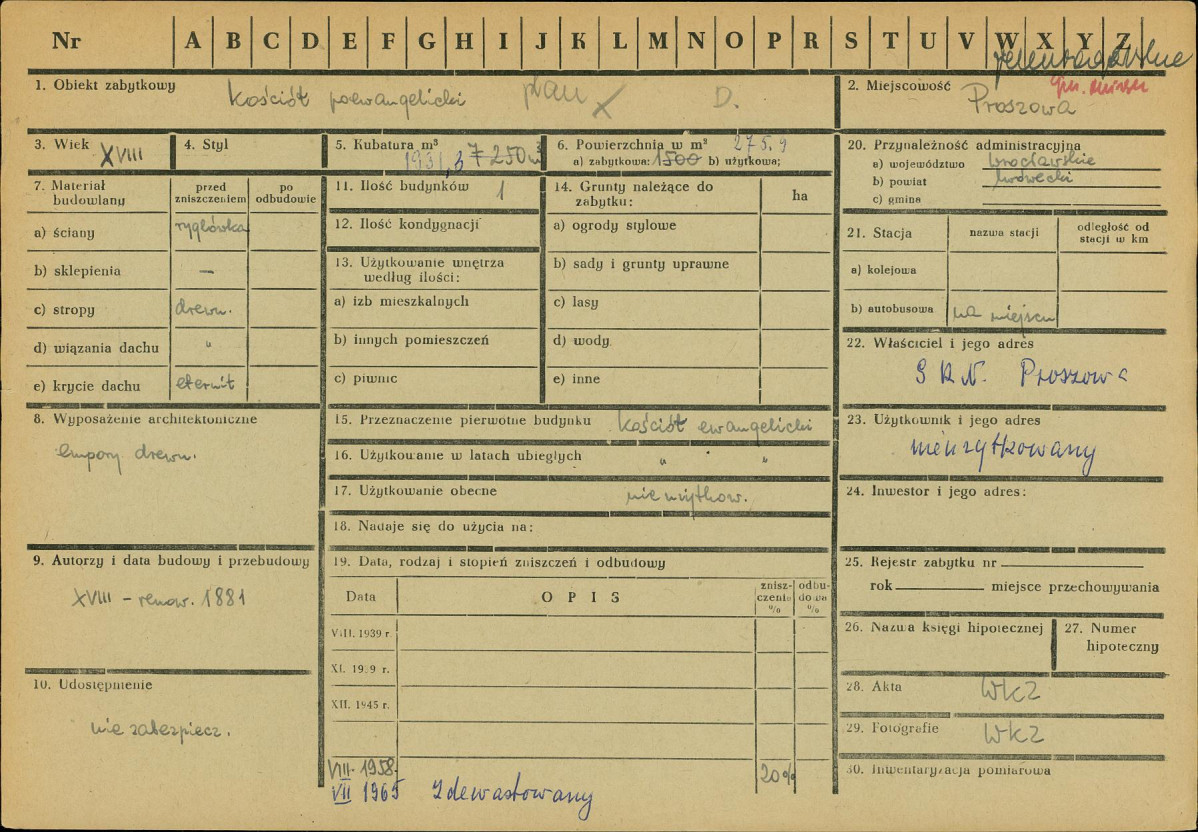 Nr A B C D E F G H I J K L M N O P R S T U V W X Y Z
1. Obiekt zabytkowy kościół poewangelicki plan X D.
2. Miejscowość Proszowa
3. Wiek XVIII
4. Styl
5. Kubatura m³ 1931,3 7250 m³
6. Powierzchnia w m² 275.9
a) zabytkowa: 1500 b) użytkowa;
20. Przynależność administracyjna
a) województwo wrocławskie
b) powiat lwówecki
c) gmina
7. Materiał budowlany
przed zniszczeniem
po odbudowie
a) ściany ryglówka
b) sklepienia —
c) stropy drewn.
d) wiązania dachu "
e) krycie dachu eternit
11. Ilość budynków 1
12. Ilość kondygnacji
13. Użytkowanie wnętrza
według ilości:
a) izb mieszkalnych
b) innych pomieszczeń
c) piwnic
14. Grunty należące do
zabytku:
ha
a) ogrody stylowe
b) sady i grunty uprawne
c) lasy
d) wody
e) inne
21. Stacja
nazwa stacji
odległość od
stacji w km
a) kolejowa
b) autobusowa na miejscu
22. Właściciel i jego adres
Proszowa
8. Wyposażenie architektoniczne
empory drewn.
15. Przeznaczenie pierwotne budynku kościół ewangelicki
16. Użytkowanie w latach ubiegłych " "
17. Użytkowanie obecne nieużytkow.
18. Nadaje się do użycia na:
23. Użytkownik i jego adres
nieużytkowany
24. Inwestor i jego adres:
9. Autorzy i data budowy i przebudowy
XVIII – renow. 1881
19. Data, rodzaj i stopień zniszczeń i odbudowy
Data
OPIS
znisz-
czenie
%
odbu-
dowa
%
VIII. 1939 r.
XI. 1939 r.
XII. 1945 r.
VIII. 1958. 20%
VII 1965 Zdewastowany
25. Rejestr zabytku nr
rok miejsce przechowywania
26. Nazwa księgi hipotecznej
27. Numer
hipoteczny
10. Udostępnienie
nie zabezpiecz.
28. Akta WKZ
29. Fotografie WKZ
30. Inwentaryzacja pomiarowa